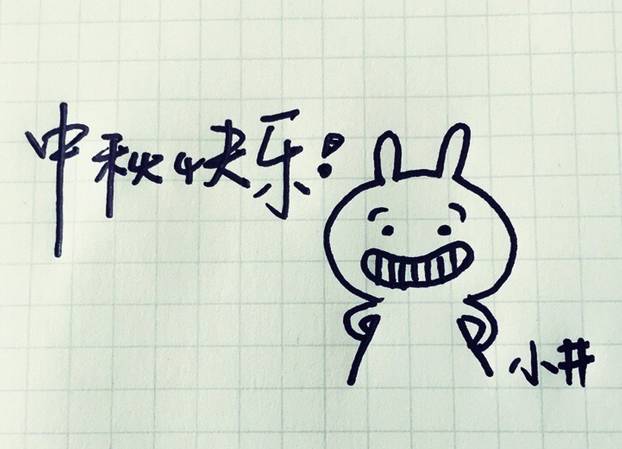 中秋快乐!
小井